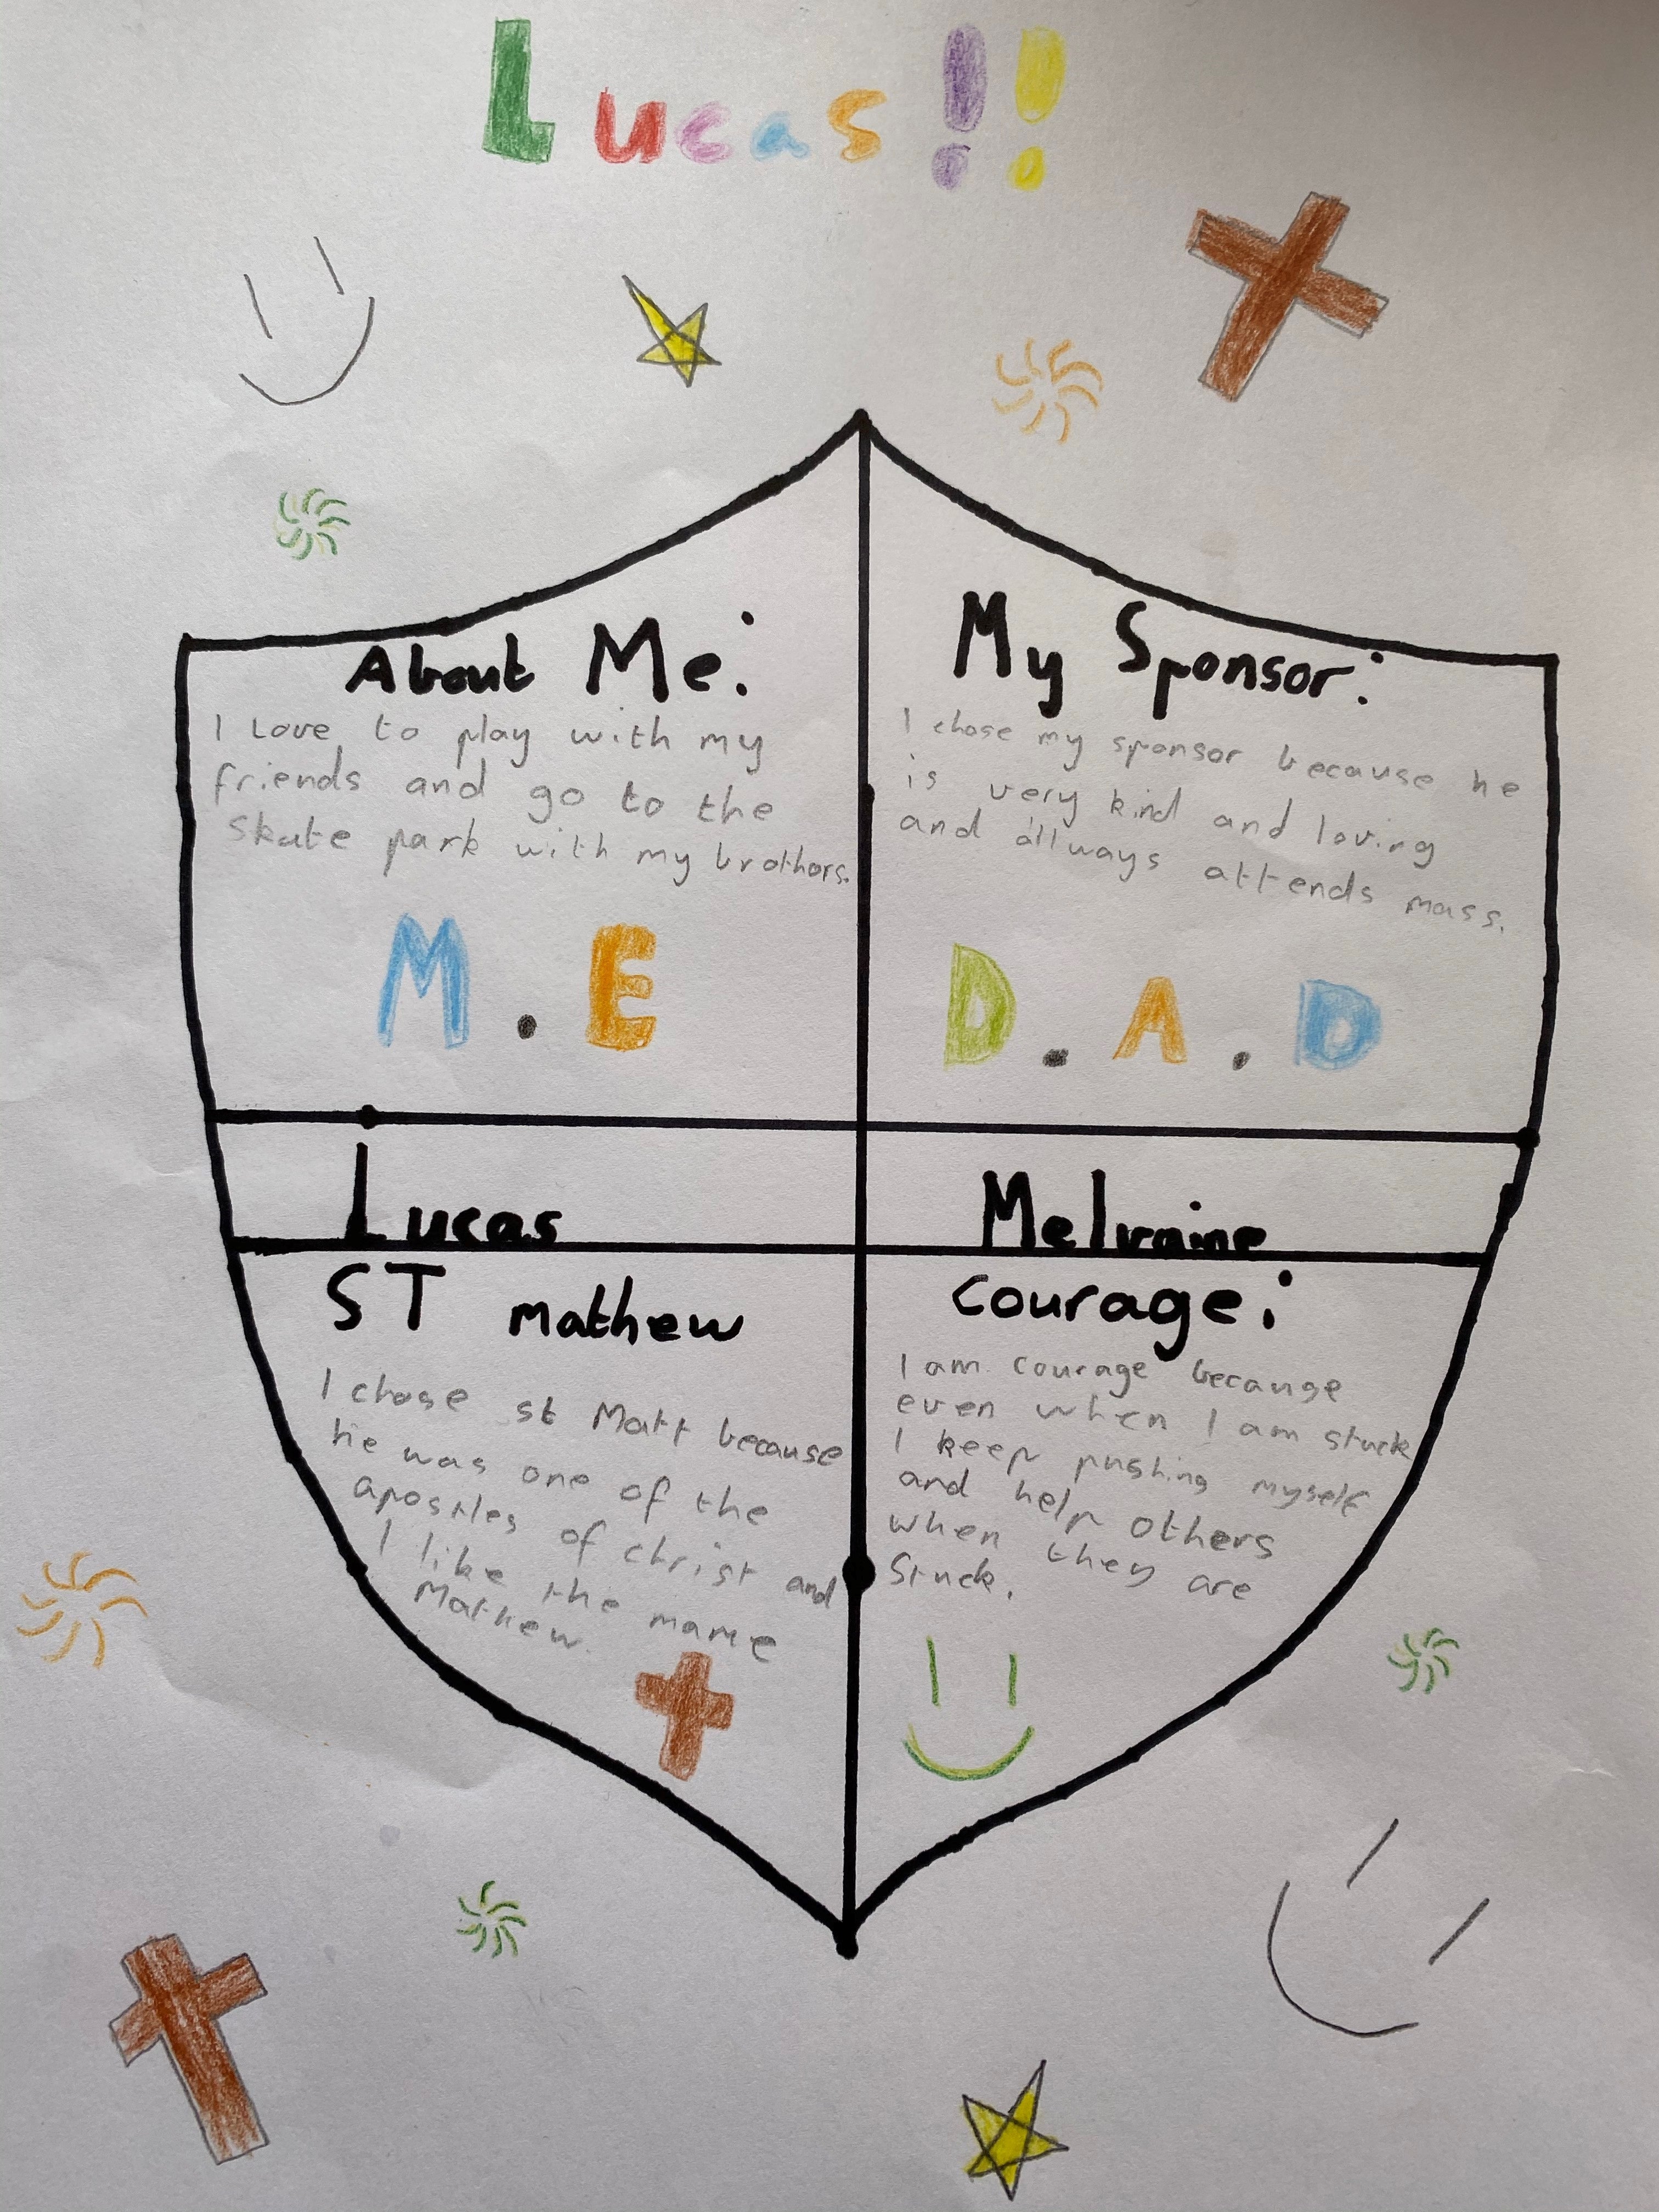 Lucas!!
About Me:
I Love to play with my
friends and go to the
Skate park with my brothors.
M.E
My Sponsor:
I chose my sponsor because he
is very kind and loving
and allways attends mass.
D.A.D
Lucas
ST mathew
I chose st Matt because
he was one of the
apostles of christ and
I like the name
Mathew.
courage:
I am courage because
even when I am stuck
I keep pushing myself
and help others
when they are
Stuck.